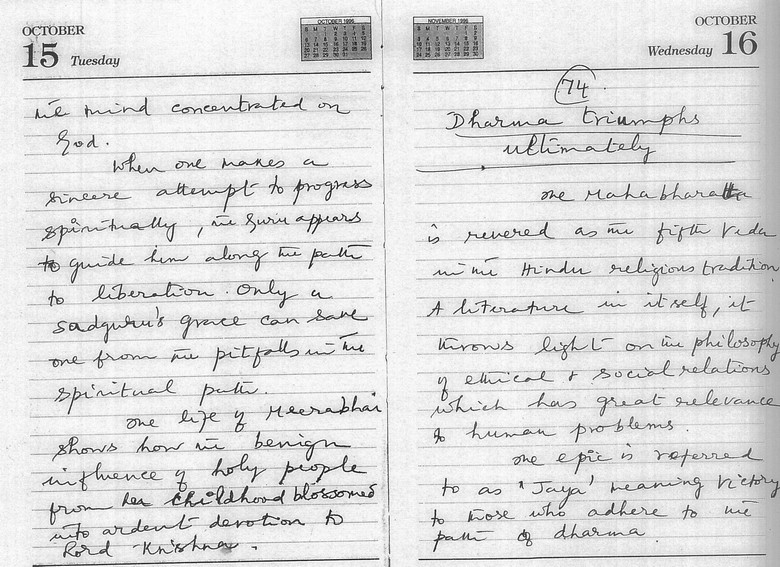 OCTOBER
15 Tuesday
OCTOBER 1996
the mind concentrated on
God.
When one makes a
sincere attempt to progress
spiritually, the Guru appears
to guide him along the path
to liberation. Only a
sadguru's grace can save
one from the pitfalls in the
spiritual path.
The life of Meerabhai
shows how the benign
influence of holy people
from her childhood blossomed
into ardent devotion to
Lord Krishna.
NOVEMBER 1996
OCTOBER
Wednesday 16
74.
Dharma triumphs
ultimately
The Mahabharatta
is revered as the fifth Veda
in the Hindu religious tradition
A literature in itself, it
throws light on the philosophy
of ethical & social relations
which has great relevance
to human problems.
The epic is referred
to as 'Jaya' meaning Victory
to those who adhere to the
path of dharma.